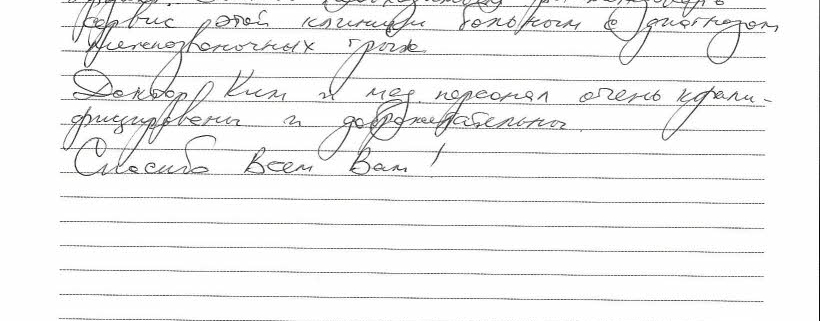 сервис этой клиники больным с диагнозом
межпозвоночных грыж.
Доктор Ким и мед. персонал очень квали-
фицированы и доброжелательны.
Спасибо Всем Вам!